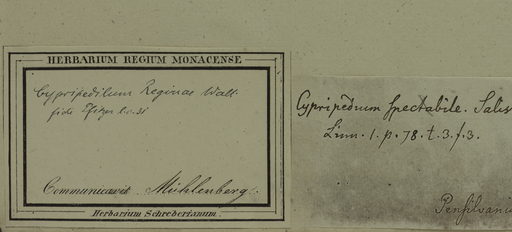 HERBARIUM REGIUM MONACENSE
Cypripedilum Reginae Walt.
fide Pfitzer l.c. 31
Communicavit Mühlenberg.
Herbarium Schreberianum.
Cypripedium spectabile. Salis
Linn. 1. p. 78. t. 3. f. 3.
Pensilvani